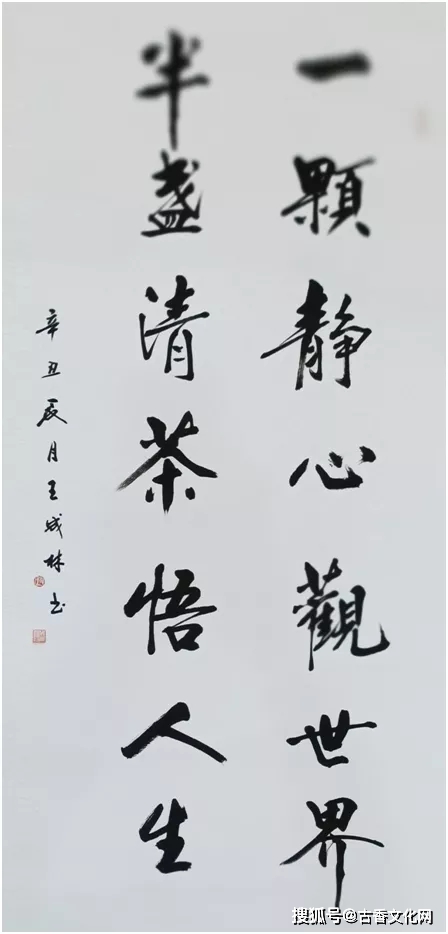 一顆靜心觀世界
半盞清茶悟人生
辛丑辰月王成林书
搜狐号@古香文化网